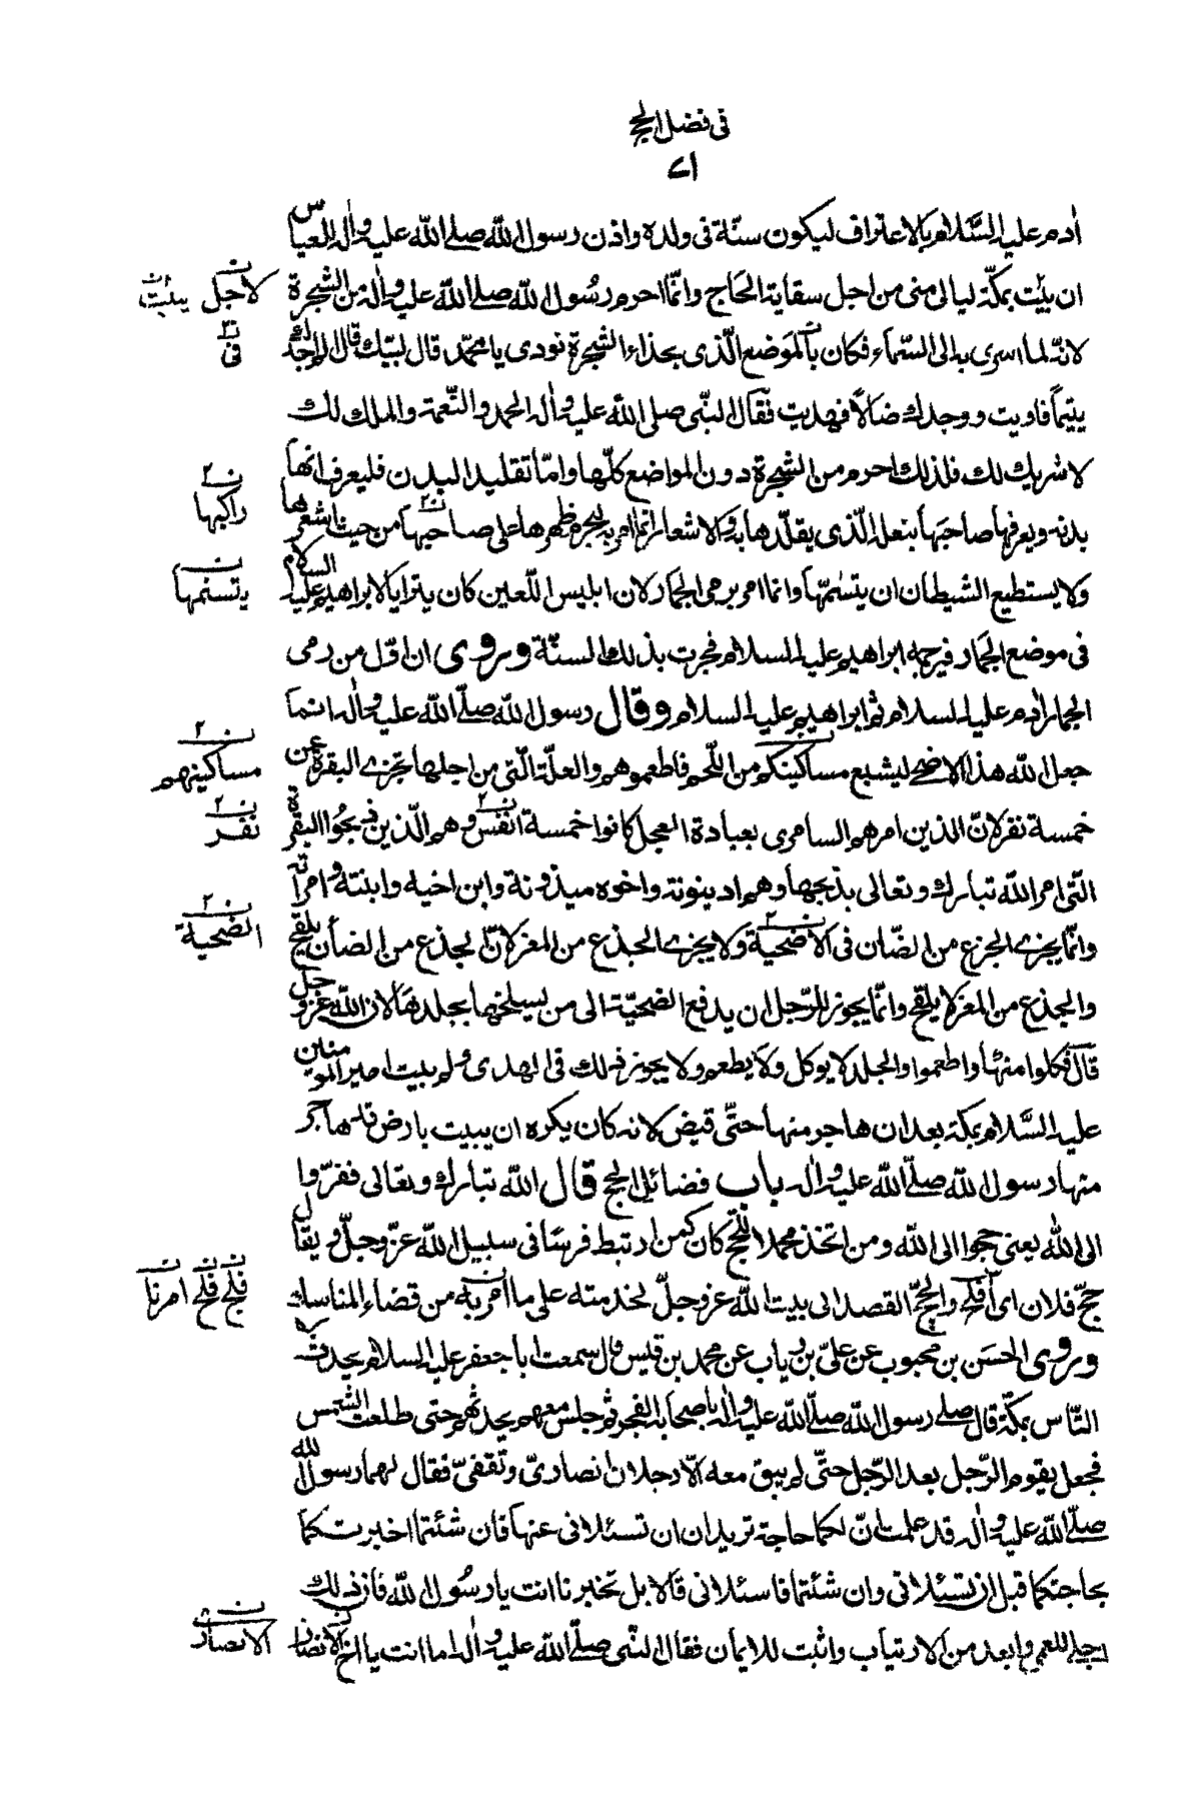 فی فضل الحج
٧١
اٰدم علیه السَّلام بالاعتراف لیکون سنّة فی ولده واذن رسول اللّه صلی اللّه علیه واٰله للعباس
ان یبیت بمکّة لیالی منی من اجل سقایة الحاج وانّما احرم رسُول اللّه صلی اللّه علیه واٰله من الشجرة
لانّه لما اسری به الی السّماء فکان بالموَضع الّذی بحذاء الشجرة نودی یا محمّد قال لبّیك قال الم اجدك
یتیماً فاویت ووجدتك ضالّاً فهدیت فقال النبّی صلی اللّه علیه واٰله الحمد والنّعمة والملك لك
لا شریك لك فلذلك احرم من الشجرة دون المواضع کلّها وامّا تقلید البدن فلیعرف انها
بدنه ویعرفها صاحبَها بنعله الّذی یقلّدها به والاشعار انّما امر به لیحرم ظهرها علی صاحبها من حیث اشعرها
ولا یستطیع الشیطان ان یتسّمها وانما امر برمی الجمار لان ابلیس اللّعین کان یترایا لابراهیم علیه السلام
فی موضع الجَمار فیرجمه ابراهیم علیه السلام فجرت بذلك السنّة وروی ان اوّل من رمی
الجمار اٰدم علیه السلام ثم ابراهیم علیه السلام وقال رسول اللّه صلّی اللّه علیه واٰله انما
جعل اللّه هذا الاضحی لیشبع مساکینکم من اللّحم فاطعموهم والعلّة الّتی من اجلها تجزی البقرة عن
خمسة نفر لانّ الذین امرهم السامری بعبادة العجل کانوا خمسة انفس وهم الّذین ذبحُوا البقرة
الّتی امر اللّه تبارك وتعالی بذبحها وهم ادینونة واخوه میذونة وابن اخیه وابنته وامراته
وانّما یجزی الجزع من الضّان فی الاضحیّة ولا یجزی الجذع من المعز لانّ الجذع من الضأن یلقح
والجذع من المعز لا یلقح وانّما یجوز للرّجل ان یدفع الضحیّة الی من یسلخها بجلدها لان اللّه عز وجل
قال فکلوا منها واطعموا والجلد لا یوکل ولا یطعم ولا یجوز ذلك فی الهدی ولم یبیت امیر المومنین
علیه السَّلام بمکة بعد ان هاجر منها حتّی قبض لانه کان یکره ان یبیت بارض قد هاجر
منها رسول اللّه صلّی اللّه علیه واٰله باب فضائل الحج قال اللّه تبارك وتعالی ففرّوا
الی اللّه یعنی حجوا الی اللّه ومن اتخذ محملا للحج کان کمن ارتبط فرسًا فی سبیل اللّه عزّ وجلّ ویقال
حجّ فلان ای افلح والحجّ القصد الی بیت اللّه عز وجلّ لخدمته علی ما امر به من قضاء المناسك
وروی الحسَن بن محبوب عن علیّ بن ریاب عن محمد بن قیس قال سمعت ابا جعفر علیه السلام یحدث
النّاس بمکّة قال صلی رسول اللّه صلّی اللّه علیه واٰله باصحابه الفجر ثم جلس معهم یحدثهم حتی طلعت الشمس
فجعل یقوم الرّجل بعد الرّجل حتّی لم یبق معه الّا رجلان انصاریّ وثقفیّ فقال لهما رسول اللّه
صلّی اللّه علیه واٰله قد علمت انّ لکما حاجة تریدان ان تسئلانی عنها فان شئتما اخبرتکما
بحاجتکما قبل ان تسئلانی وان شئتما فاسئلانی قالا بل تخبرنا انت یا رسُول اللّه فان ذلك
اجلی للعمی وابعد من الارتیاب واثبت للایمان فقال النبّی صلّی اللّه علیه واٰله اما انت یا اخ الانصار
لاجل یبیت
فی
راکبها
یتسنمها
مساکینهم
نفر
الضّحیة
فلج فلح امرنا
الانصار